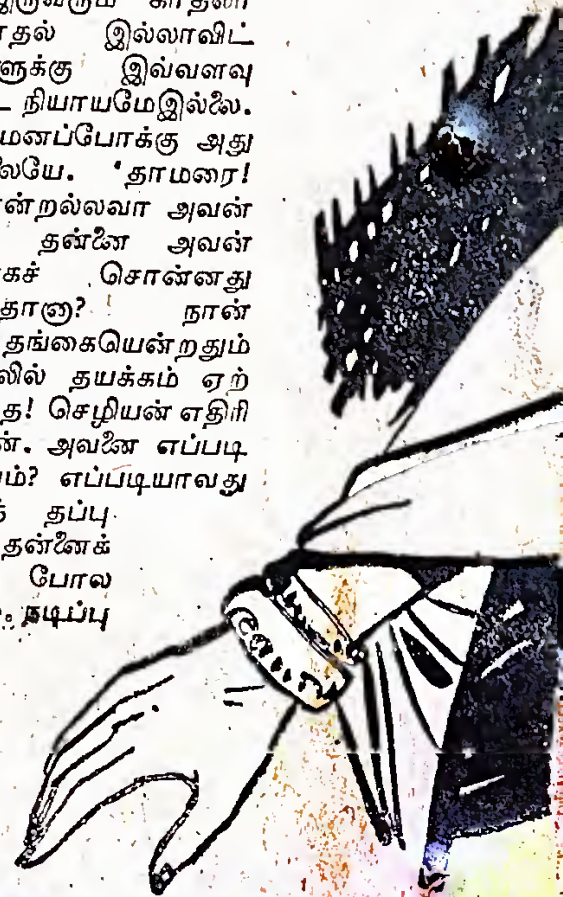 காதல் இல்லாவிட்
ளுக்கு இவ்வளவு
நியாயமேஇல்லை.
மனப்போக்கு அது
லையே. 'தாமரை!
என்றல்லவா அவன்
தன்னை அவன்
கச் சொன்னது
தானா? நான்
தங்கையென்றதும்
லில் தயக்கம் ஏற்
த! செழியன் எதிரி
ன். அவனை எப்படி
ம்? எப்படியாவது
தப்பு
தன்னைக்
போல
நடிப்பு